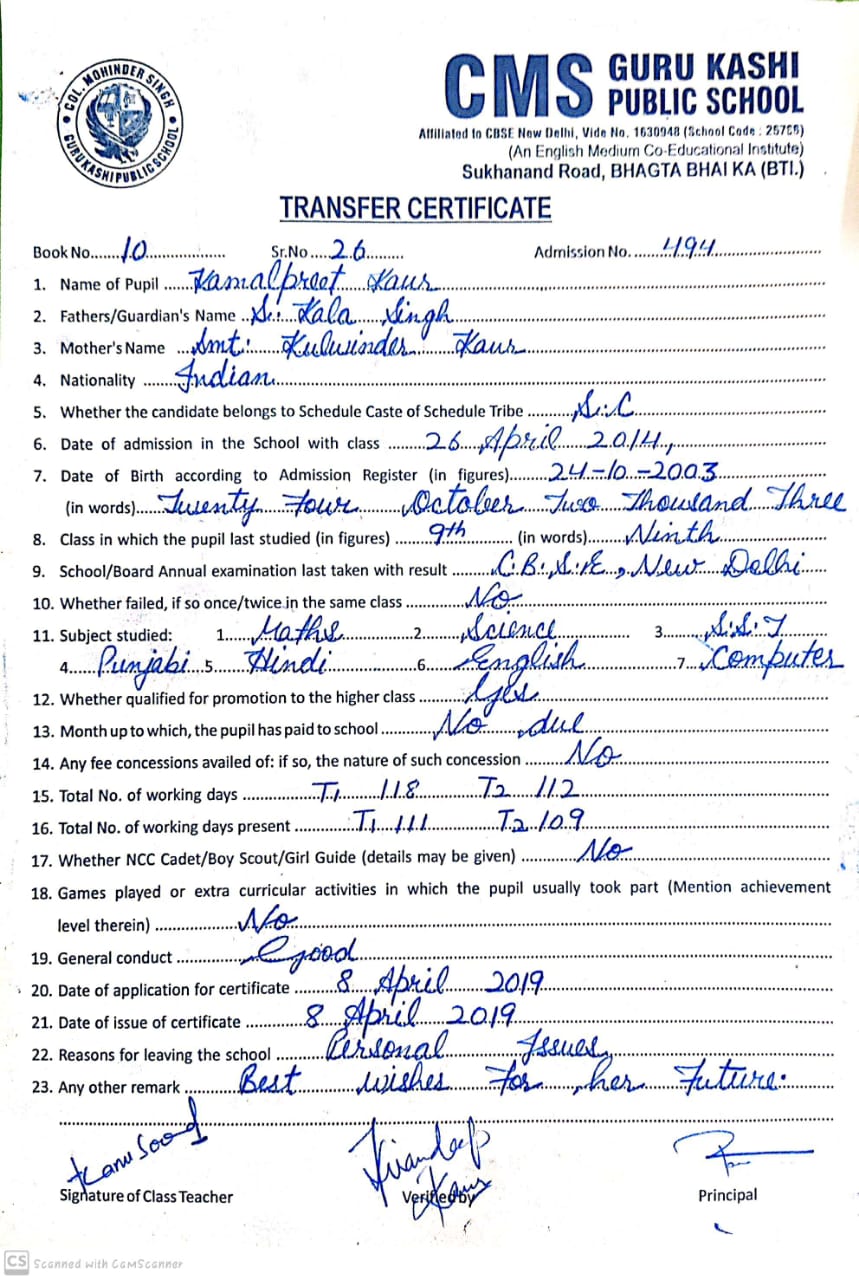 COL. MOHINDER SINGH
GURU KASHI PUBLIC SCHOOL
CMS GURU KASHI PUBLIC SCHOOL
Affiliated to CBSE New Delhi, Vide No. 1630948 (School Code : 25766)
(An English Medium Co-Educational Institute)
Sukhanand Road, BHAGTA BHAI KA (BTI.)
TRANSFER CERTIFICATE
Book No. 10 Sr.No. 26 Admission No. 494
1. Name of Pupil Kamalpreet Kaur
2. Fathers/Guardian's Name Sr. Kala Singh
3. Mother's Name Smt. Kulwinder Kaur
4. Nationality Indian
5. Whether the candidate belongs to Schedule Caste of Schedule Tribe S.C
6. Date of admission in the School with class 26 April 2014,
7. Date of Birth according to Admission Register (in figures) 24-10-2003
(in words) Twenty Four October Two Thousand Three
8. Class in which the pupil last studied (in figures) 9th (in words) Ninth
9. School/Board Annual examination last taken with result C.B.S.E, New Delhi
10. Whether failed, if so once/twice in the same class No
11. Subject studied: 1. Maths 2. Science 3. S.S.T
4. Punjabi 5. Hindi 6. English 7. Computer
12. Whether qualified for promotion to the higher class Yes
13. Month up to which, the pupil has paid to school No due
14. Any fee concessions availed of: if so, the nature of such concession No
15. Total No. of working days T1 118 T2 112
16. Total No. of working days present T1 111 T2 109
17. Whether NCC Cadet/Boy Scout/Girl Guide (details may be given) No
18. Games played or extra curricular activities in which the pupil usually took part (Mention achievement
level therein) No
19. General conduct Good
20. Date of application for certificate 8 April 2019
21. Date of issue of certificate 8 April 2019
22. Reasons for leaving the school Personal Issues
23. Any other remark Best wishes For her Future.
Kanu Sood Kirandeep Kaur
Signature of Class Teacher Verified by Principal
CS Scanned with CamScanner